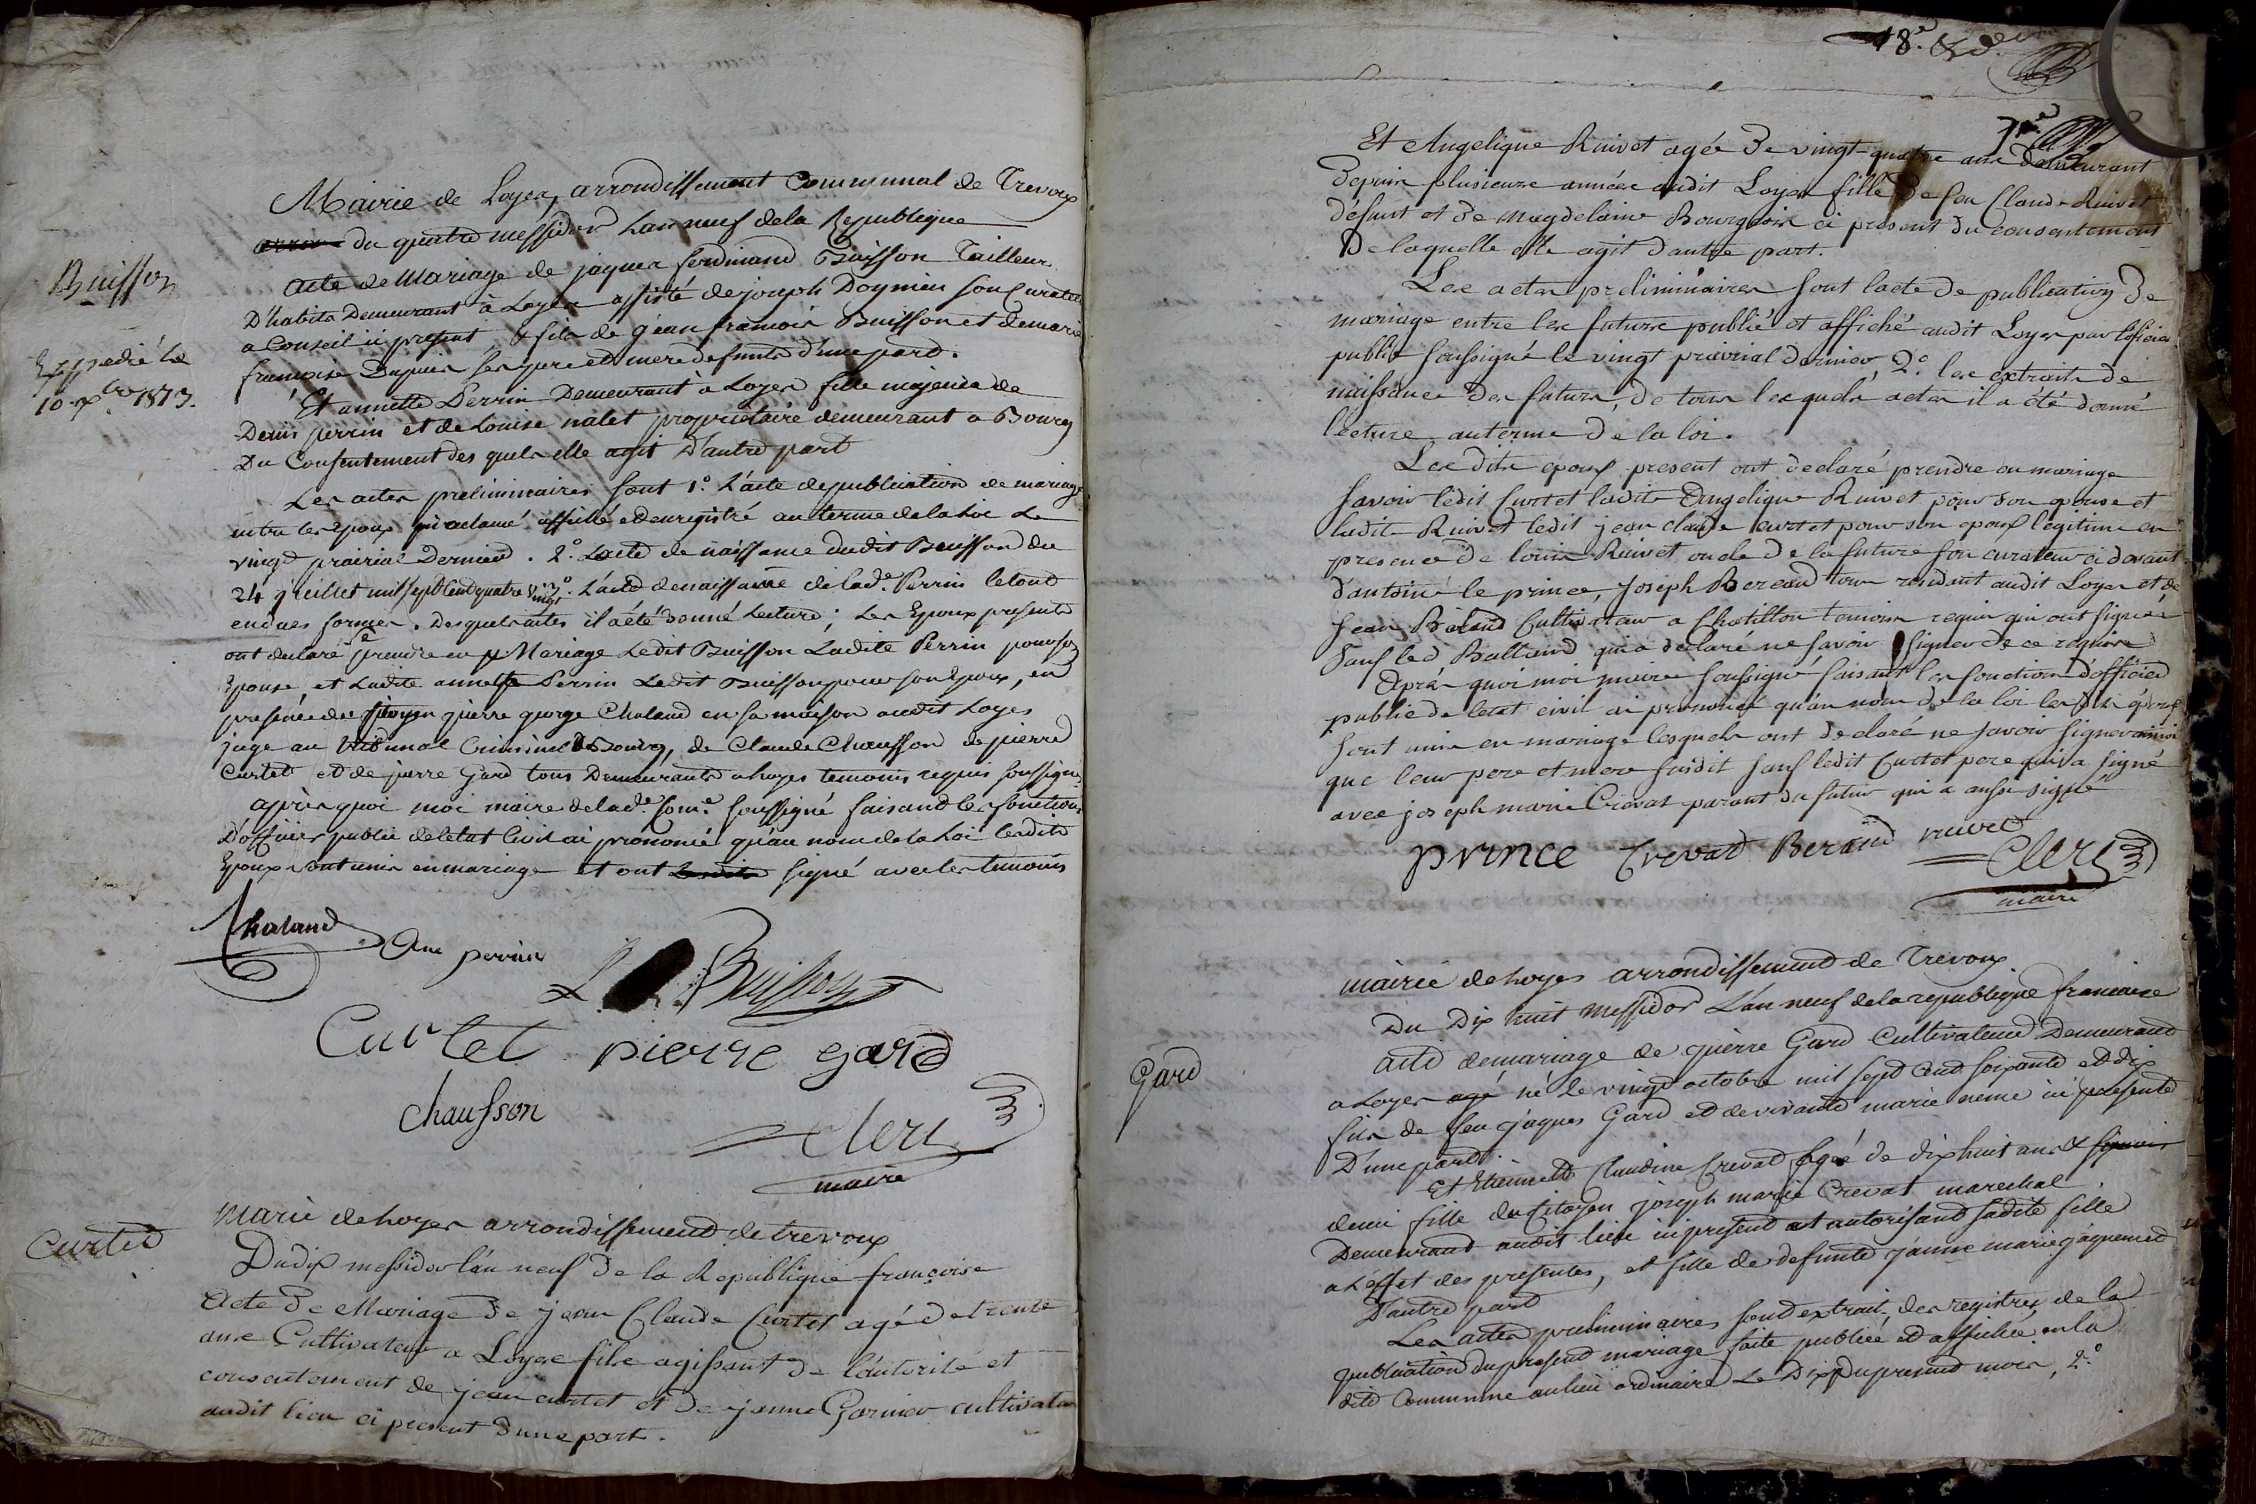 Mairie de Loyes, arrondissement Communal de Trevoux
du quatre messidor L'an neuf dela Republique
Buisson
acte de Mariage de jaques ferdinand Buisson Tailleur
D'habits Demeurant à Loyes assisté de joseph Doynieu son Curateur
a Conseil ici present, & fils de jean francois Buisson et demarie
Expedié le
10 xbre 1813.
francoise Dupuis ses pere et mere defunts d'une part.
Et annette Perrin Demeurant à Loyes fille majeure de
Denis perrin et de Louise nalet propriétaire demeurant a Bourg
Du Consentement des quels elle agit D'autre part
Les actes preliminaires sont 1.º L'acte depublication de mariage
entre les Epoux proclamé affiché et enregistré au terme dela Loi Le
vingt prairial Dernier. 2.º Lacte de naissance dudit Buisson du
24 juillet mil sept Cent quatre vingt 3º. L'acte denaissance de lade. Perrin letout
endues formes. Desquels actes il a été donné Lecture; Les Epoux presents
ont declaré prendre en Mariage Ledit Buisson Ladite Perrin pour son
Epouse, et Ladite annette Perrin Ledit Buisson pour son Epoux, en
presence du Citoyen pierre george Chaland en sa maison audit Loyes
juge au tribunal Criminel de Bourg, de Claude Chausson de pierre
Curtet et de pierre Gard tous Demeurants a Loyes temoins requis soussignés
après quoi moi maire de lade. Come. soussigné faisant les fonctions
D'officier public deletat Civil ai prononcé qu'au nom de la Loi lesdits
Epoux sont unis en mariage et ont signé avec les temoins
Chaland
Ane perrin
Buisson
Curtet pierre gard
Chausson
Clerc
maire
Curtet
Marie de Loyes arrondissement de trevoux
Du dix messidor l'an neuf de la Republique françoise
Acte de Mariage de jean Claude Curtet agé de trente
ans Cultivateur a Loyes fils agissant de l'autorité et
consentement de jean curtet et de jeanne Garnier cultivateur
audit lieu ci present d'une part.
18.e
Et Angelique Ruivet agée de vingt-quatre ans demeurant
depuis plusieurs années audit Loyes fille de feu Claude Ruivet
défunt et de Magdelaine Bourgeois ci present du consentement
De laquelle elle agit d'autre part.
Les actes preliminaires sont lacte de publication de
mariage entre les futurs publié et affiché audit Loyes par l'officier
public soussigné le vingt prairial dernier, 2.º les extraits de
naissance des futurs, de tous lesquels actes il a été donné
lecture au terme de la loi.
Les dits epoux present ont declaré prendre en mariage
savoir ledit Curtet ladite Angelique Ruivet pour son epouse et
ladite Ruivet ledit jean claude curtet pour son epoux legitime en
presence de louis Ruivet oncle de la future son curateur ci devant
d'antoine le prince, Joseph Bereaud tous residant audit Loyes et de
Jean Cultivateur a Chatillon temoins requis qui ont signés
sauf led. qui a declaré ne savoir signer de ce requis
Après quoi moi maire soussigné faisant les fonctions d'officier
public de l'etat civil ai prononcé qu'au nom de la loi lesdits époux
sont unis en mariage lesquels ont declaré ne savoir signer ainsi
que leur pere et mere susdit sauf ledit Curtet pere qui a signé
avec joseph marie Crevat parent du futur qui a aussi signé
prince Crevat Beraud ruivet
Clerc
maire
mairie de Loyes arrondissement de Trevoux
Du Dix huit Messidor L'an neuf dela republique francaise
Gard
acte demariage de pierre Gard Cultivateur Demeurant
a Loyes agé né Le vingt octobre mil sept Cent soixante et dix
fils de feu jaques Gard et de vivante marie neme ici presente
D'une part.
Et Etiennette Claudine Crevat agée de dix huit ans &
demi fille du Citoyen joseph marie Crevat marechal
Demeurant audit lieu ici present et autorisant sadite fille
a L'effet des presentes, et fille de defunte jeanne marie jaquemet
D'autre part
Les actes preliminaires sont extrait des registres de la
publication du present mariage faite publiée et affichée en la
dite Commune au lieu ordinaire Le Dix du present mois, 2.º